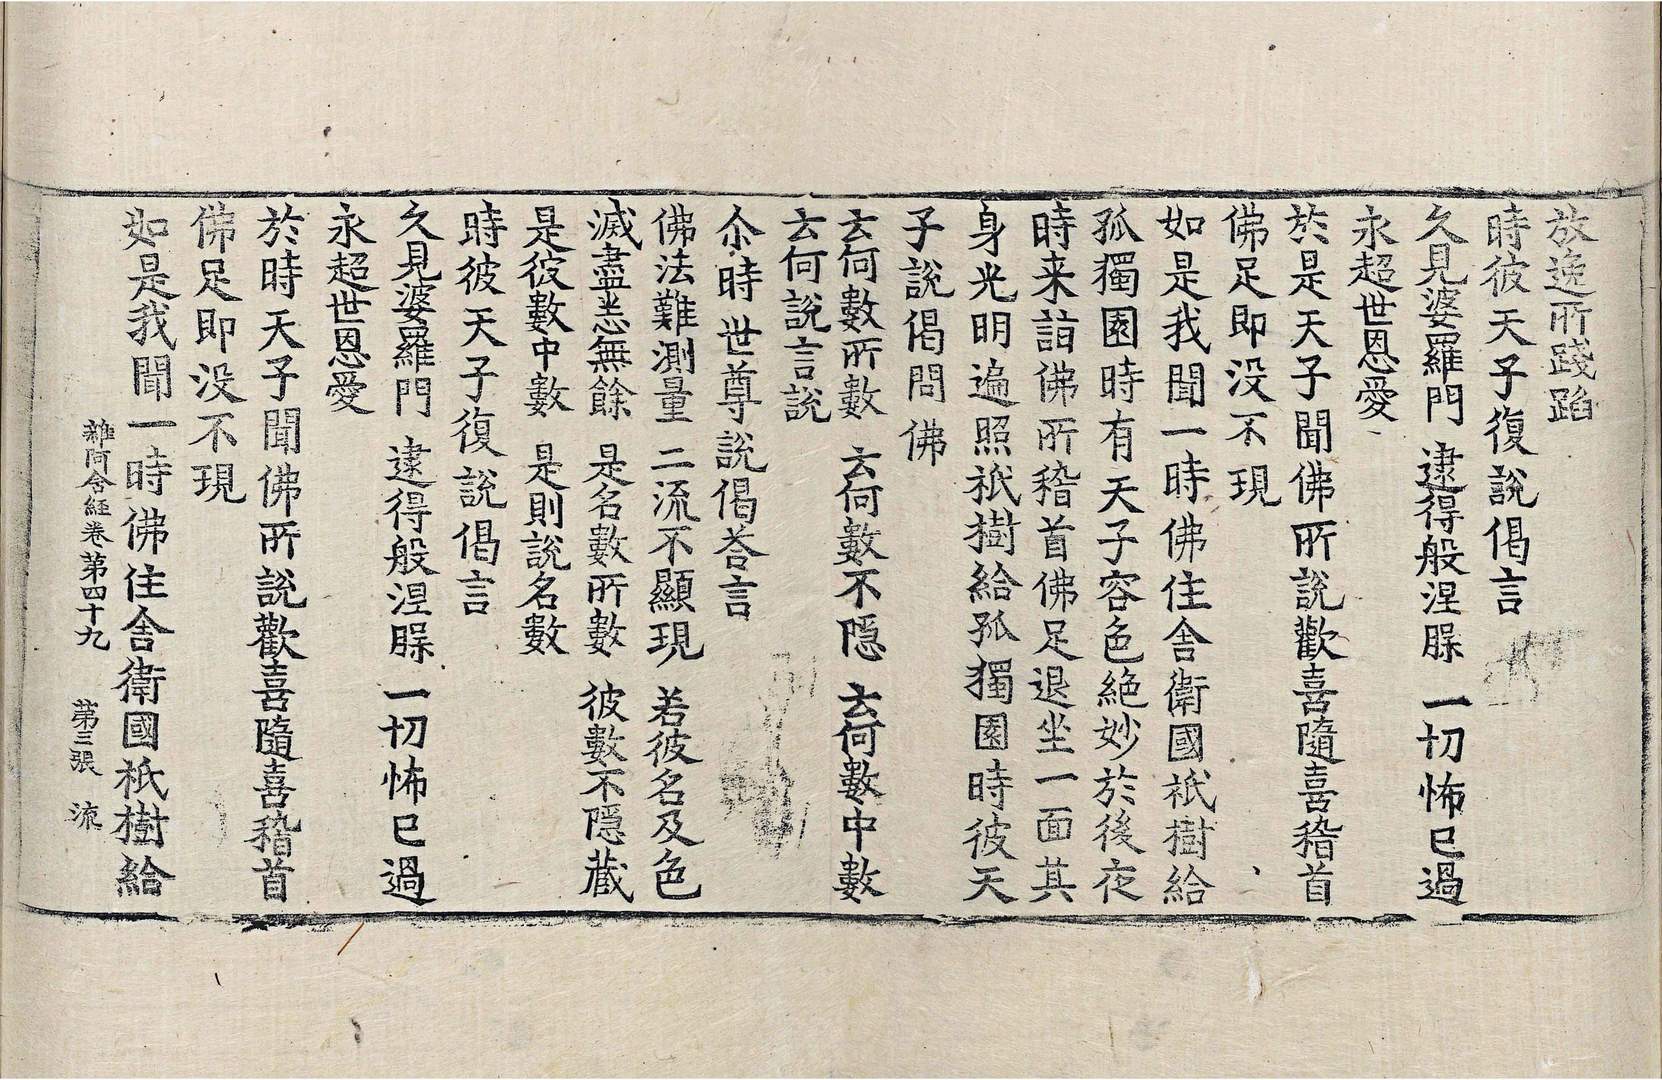 放逸所踐蹈
時彼天子復說偈言
久見婆羅門 逮得般涅槃 一切怖已過
永超世恩愛
於是天子聞佛所說歡喜隨喜稽首
佛足即没不現
如是我聞一時佛住舍衛國祇樹給
孤獨園時有天子容色絶妙於後夜
時来詣佛所稽首佛足退坐一面其
身光明遍照祇樹給孤獨園時彼天
子說偈問佛
云何數所數 云何數不隱 云何數中數
云何說言說
尒時世尊說偈荅言
佛法難測量 二流不顯現 若彼名及色
滅盡悉無餘 是名數所數 彼數不隱藏
是彼數中數 是則說名數
時彼天子復說偈言
久見婆羅門 逮得般涅槃 一切怖已過
永超世恩愛
於時天子聞佛所說歡喜隨喜稽首
佛足即没不現
如是我聞一時佛住舍衛國祇樹給
雜阿含經卷第四十九 第三張 流